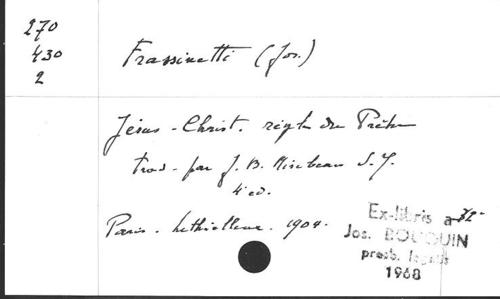 270
430
2
Frassinetti (Jos.)
Jésus-Christ. règle du Prêtre
trad. par J. B. Mirebeau S. J.
4 ed.
Paris. Lethielleux. 1904.
Ex-libris
Jos. BOUQUIN
presb.
1968